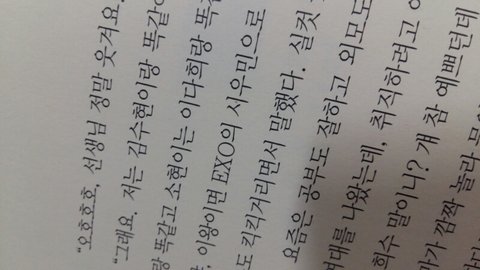 "오호호호, 선생님 정말 웃겨요.
"그래요. 저는 김수현이랑
똑같고 소현이는 이다희랑
이왕이면 EXO의 시우민으로
도 킥킥거리면서 말했다. 실컷
요즘은 공부도 잘하고 외모도
나왔는데, 취직하려고
희수 말이니? 걔 참 예쁘던데
깜짝 놀라